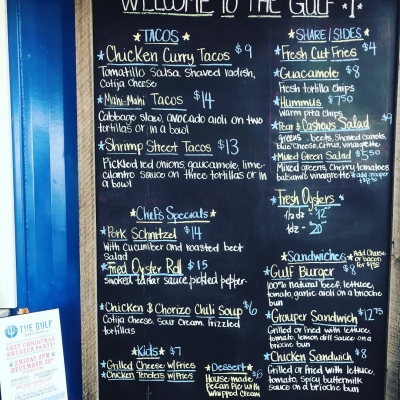 WELCOME TO THE GULF
TACOS
Chicken Curry Tacos $9
Tomatillo Salsa, Shaved radish,
Cotija cheese
Mahi-Mahi Tacos $14
Cabbage slaw, avocado aioli on two
tortillas or in a bowl
Shrimp Street Tacos $13
Pickled red onions, guacamole, lime-
cilantro sauce on three tortillas or in
a bowl
Chefs Specials
Pork Schnitzel $14
With cucumber and roasted beet
Salad
Fried Oyster Roll $15
smoked tartar sauce, pickled pepper
Chicken & Chorizo Chili Soup $6
Cotija Cheese, Sour Cream, frizzled
tortillas
Kids $7
Grilled Cheese w/Fries
Chicken Tenders w/Fries
Dessert $6
House made
Pecan Pie with
Whipped Cream
SHARE/SIDES
Fresh Cut Fries $4
Guacamole $8
Fresh tortilla chips
Hummus $7.50
warm pita chips
Pear & Cashews Salad $9
greens, beets, Shaved carrots,
blue cheese, citrus vinaigrette
Mixed Green Salad $5.50
Mixed greens, Cherry tomatoes
balsamic vinaigrette
Fresh Oysters
1/2 dz - $12
1dz - $20
Sandwiches
Add Cheese
or bacon
for
Gulf Burger $8
100% natural beef, lettuce,
tomato, garlic aioli on a brioche
bun
Grouper Sandwich $12.75
Grilled or fried with lettuce,
tomato, lemon dill sauce on a
brioche bun
Chicken Sandwich $8
Grilled or fried with lettuce,
tomato, Spicy buttermilk
sauce on a brioche bun
THE GULF
UGLY CHRISTMAS
SWEATER PARTY!
FRIDAY
DECEMBER